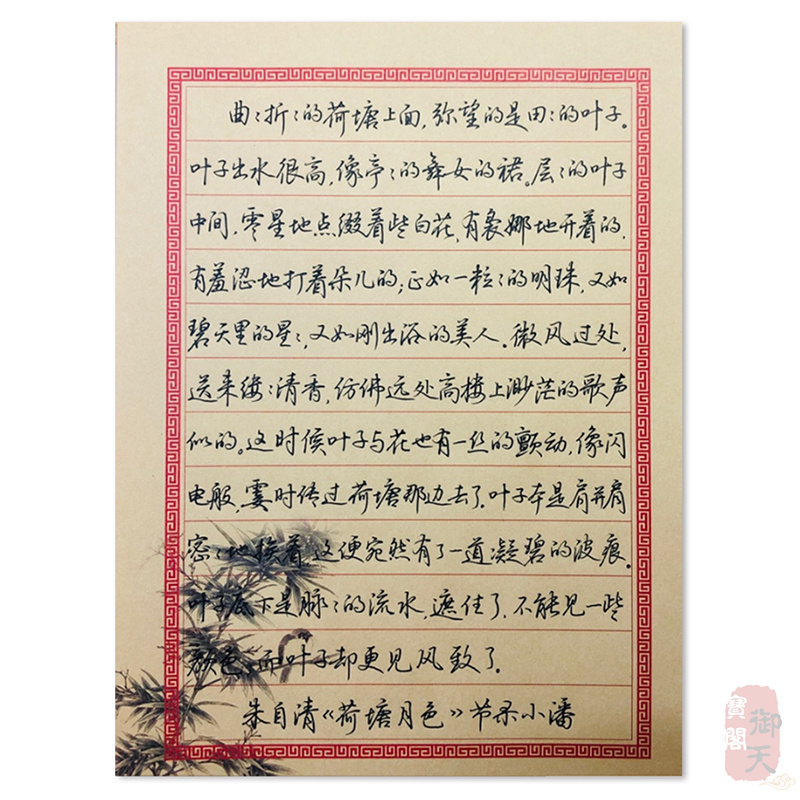 曲:折:的荷塘上面,弥望的是田:的叶子。
叶子出水很高,像亭:的舞女的裙。层:的叶子
中间,零星地点缀着些白花,有袅娜地开着的,
有羞涩地打着朵儿的;正如一粒:的明珠,又如
碧天里的星:,又如刚出浴的美人。微风过处,
送来缕:清香,仿佛远处高楼上渺茫的歌声
似的。这时候叶子与花也有一丝的颤动,像闪
电般,霎时传过荷塘那边去了。叶子本是肩并肩
密:地挨着,这便宛然有了一道凝碧的波痕。
叶子底下是脉:的流水,遮住了,不能见一些
颜色,而叶子却更见风致了。
朱自清《荷塘月色》节录小潘
御天
寶閣